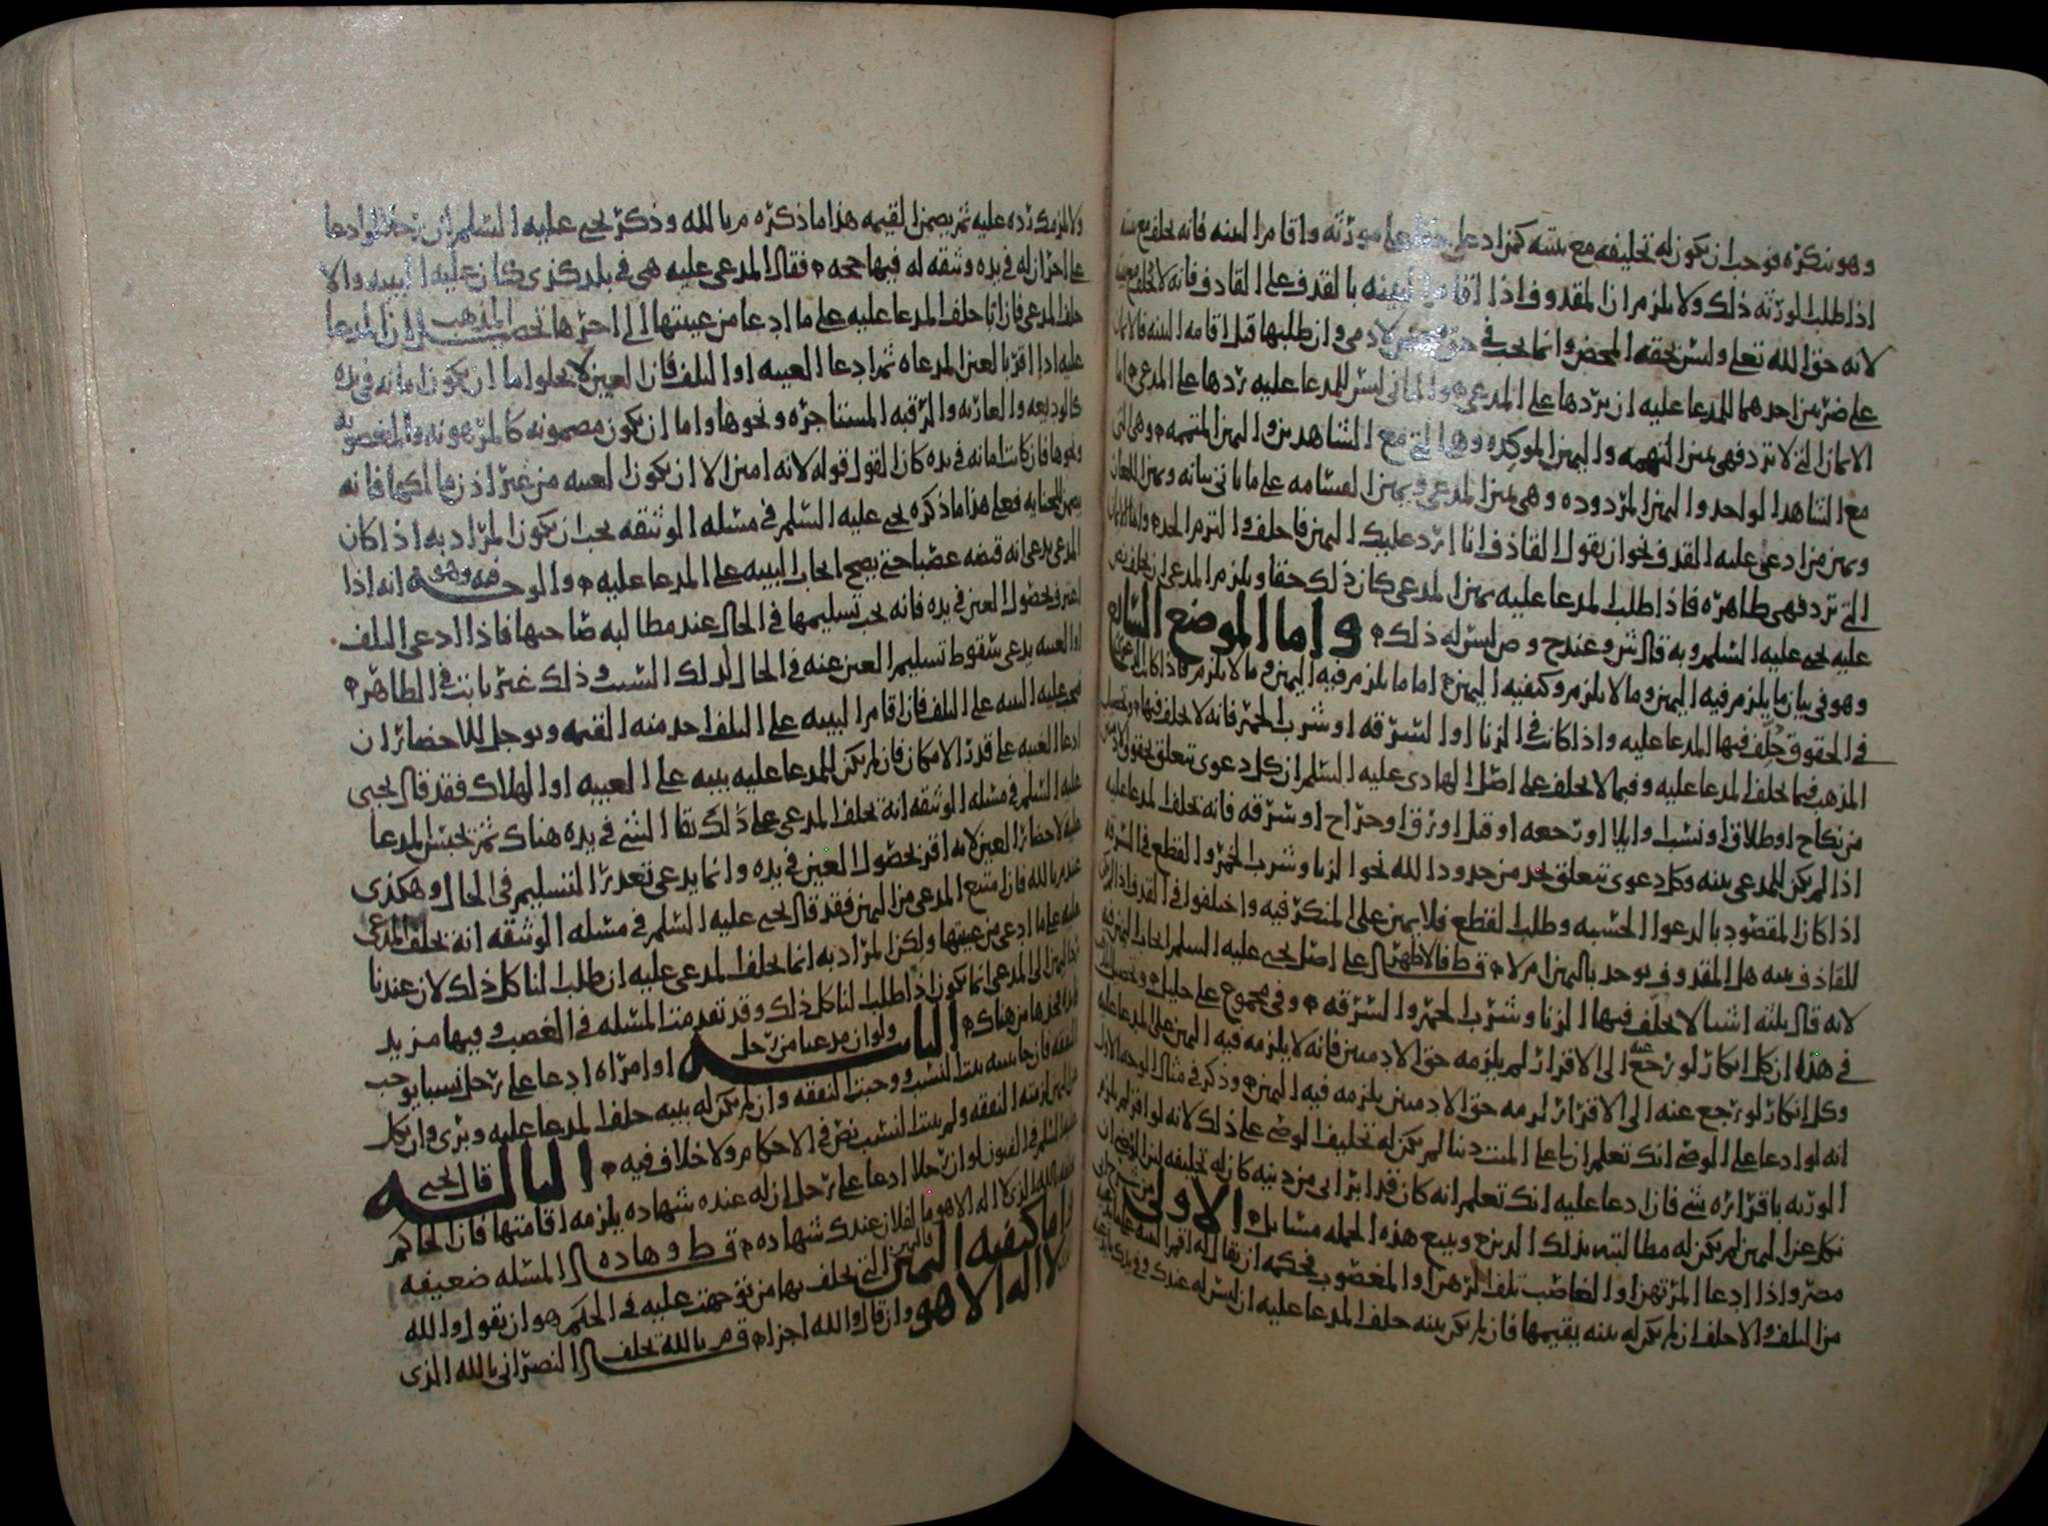 وهو ينكره فوجب ان يكون له تحليفه مع بينته كمن ادعى حقا على مورثه واقام البينه فانه يحلف مع بينته
اذا طلب الورثه ذلك ولا يلزم ان المقذوف اذا اقام البينه بالقذف على القاذف فانه لا يحلف مع بينته
لانه حق الله تعالى وليس بحقه المحض وانما يجب في حق محض لادمي وان طلبها قبل اقامه البينه فالايمان
على ضربين احدهما للمدعا عليه ان يردها على المدعي والثاني ليس للمدعا عليه ردها على المدعي اما
الايمان التي لا ترد فهي يمين التهمه واليمين الموكده وهي التي مع الشاهدين واليمين المتممه وهي التي
مع الشاهد الواحد واليمين المردوده وهي يمين المدعي ويمين القسامه على ما ياتي بيانه ويمين اللعان
ويمين من ادعى عليه القذف نحو ان يقول القاذف انا ارد عليك اليمين فاحلف والتزم الحد واما الايمان
التي ترد فهي ظاهره فاذا طلب المدعا عليه يمين المدعي كان ذلك حقا ويلزم المدعي ان يحلف نص
عليه يحيى عليه السلم وبه قال ش وعند ح وص ليس له ذلك واما الموضع السابع
وهو في بيان ما يلزم فيه اليمين وما لا يلزم وكيفيه اليمين اما ما يلزم فيه اليمين وما لا يلزم فاذا كانت الدعوى
في الحقوق حلف فيها المدعا عليه واذا كانت في الزنا او السرقه او شرب الخمر فانه لا يحلف فيها وتحصيل
المذهب فيما يحلف المدعا عليه وفيما لا يحلف على اصل الهادي عليه السلم ان كل دعوى تتعلق بحقوق الادميين
من نكاح او طلاق او نسب او ايلا او رجعه او قتل او رق او جراح او سرقه فانه يحلف المدعا عليه
اذا لم يكن للمدعي بينه وكل دعوى تتعلق بحد من حدود الله نحو الزنا وشرب الخمر والقطع في السرقه
اذا كان المقصود بالدعوا الحسبه وطلب القطع فلا يمين على المنكر فيه واختلفوا في القذف اذا لم يكن
للقاذف بينه هل المقذوف يوخذ باليمين ام لا قط فالاظهر على اصل يحيى عليه السلم ايجاب اليمين فيه
لانه قال ثلثه اشيا لا يحلف فيها الزنا وشرب الخمر والسرقه وفي مجموع علي خليل وتحصيل المذهب
في هذا ان كل انكار لو رجع عنه الى الاقرار لم يلزمه حق لادميين فانه لا يلزمه فيه اليمين على المدعا عليه
وكل انكار لو رجع عنه الى الاقرار لزمه حق الادميين يلزمه فيه اليمين وذكر في مثال الوجه الاول
انه لو ادعا على الوصي انك تعلم ان لي على الميت دينا لم يكن له تحليف الوصي على ذلك لانه لو اقر لم يلزم
الورثه باقراره شي فان ادعا عليه انك تعلم انه كان قد ابراني من دينه كان له تحليفه لان الوصي ان
نكل عن اليمين لم يكن له مطالبته بذلك الدين ويتبع هذه الجمله مسائل الاولى
واذا ادعا المرتهن او الغاصب تلف الرهن او المغصوب فحكمه ان يقال له اقم البينه على ما تدعيه
من التلف والا حلف ان لم يكن له بينه بقيمتها فان لم يكن بينه حلف المدعا عليه ان ليس له عندك
ولا يلزمك رده عليه ثم يضمن القيمه هذا ما ذكره م بالله وذكر يحيى عليه السلم ان رجلا لو ادعا
على اخر ان له في يده وثيقه له فيها حجه فقال المدعى عليه هي في بلد كذى كان عليه البينه والا
حلف المدعي فان ابا حلف المدعا عليه على ما ادعا من غيبتها الى اخرها تحصيل المذهب ان المدعا
عليه اذا اقر بالعين المدعاه ثم ادعا الغيبه او التلف فان العين لا يخلوا اما ان يكون امانه في يده
كالوديعه والعاريه والرقبه المستاجره ونحوها واما ان يكون مضمونه كالمرهونه والمغصوبه
ونحوها فان كانت امانه في يده كان القول قوله لانه امين الا ان يكون الغيبه من غير اذن مالكها فانه
يضمن للجنايه فعلى هذا ما ذكره يحيى عليه السلم في مسله الوثيقه يجب ان يكون المراد به اذا كان
المدعي يدعي انه قبضه غصبا حتى يصح ايجاب البينه على المدعا عليه والوجه فيه وهو انه اذا
اعترف بحصول العين في يده فانه يجب تسليمها في الحال عند مطالبه صاحبها فاذا ادعى التلف
او الغيبه يدعي سقوط تسليم العين عنه في الحال لذلك السبب وذلك غير ثابت في الظاهر
فعليه البينه على التلف فان اقام البينه على التلف اخذ منه القيمه ويوجل للاحضار ان
ادعا الغيبه على قدر الامكان فان لم يكن للمدعا عليه بينه على الغيبه او الهلاك فقد قال يحيى
عليه السلم في مسله الوثيقه انه يحلف المدعي على ذلك بقا الشي في يده هناك ثم يحبس المدعا
عليه لاحضار العين لانه اقر بحصول العين في يده وانما يدعي تعذر التسليم في الحال وهكذى
عند م بالله فان امتنع المدعي من اليمين فقد قال يحيى عليه السلم في مسله الوثيقه انه يحلف المدعى
عليه على ما ادعى من غيبتها ولكن المراد به انما يحلف المدعى عليه ان طلب لنا كل ذلك لان عندنا
رد اليمين الى المدعي انما يكون اذا طلب لنا كل ذلك وقد تقدمت المسله في الغصب وفيها مزيد
فخذها من هناك الثانيه ولو ان مدعيا من رجل او امراه ادعا على رجل نسبا يوجب
النفقه فان جا ببينه ثبت النسب ووجبت النفقه وان لم يكن له بينه حلف المدعا عليه وبرئ وان نكل
عن اليمين لزمته النفقه ولم يثبت النسب نص في الاحكام ولا خلاف فيه الثالثه قال يحيى
عليه السلم في الفنون لو ان رجلا ادعا على رجل ان له عنده شهاده يلزمه اقامتها فان الحاكم
يحلفه بالله الذي لا اله الا هو ما لفلان عندك شهاده قط وهاده المسله ضعيفه
واما كيفيه اليمين فاليمين التي يحلف بها من توجهت عليه في الحكم هو ان يقول والله
لا اله الا هو وان قال والله اجزا م قم بالله يحلف النصراني بالله الذي